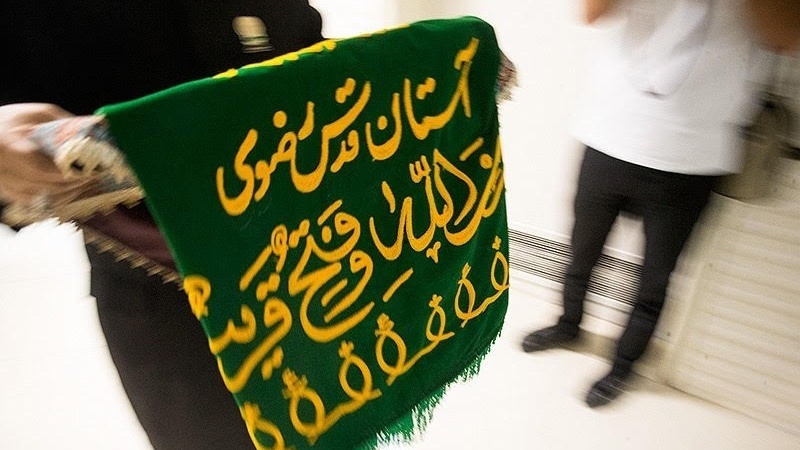 آستان قدس رضوی
من الله و فتح قریب